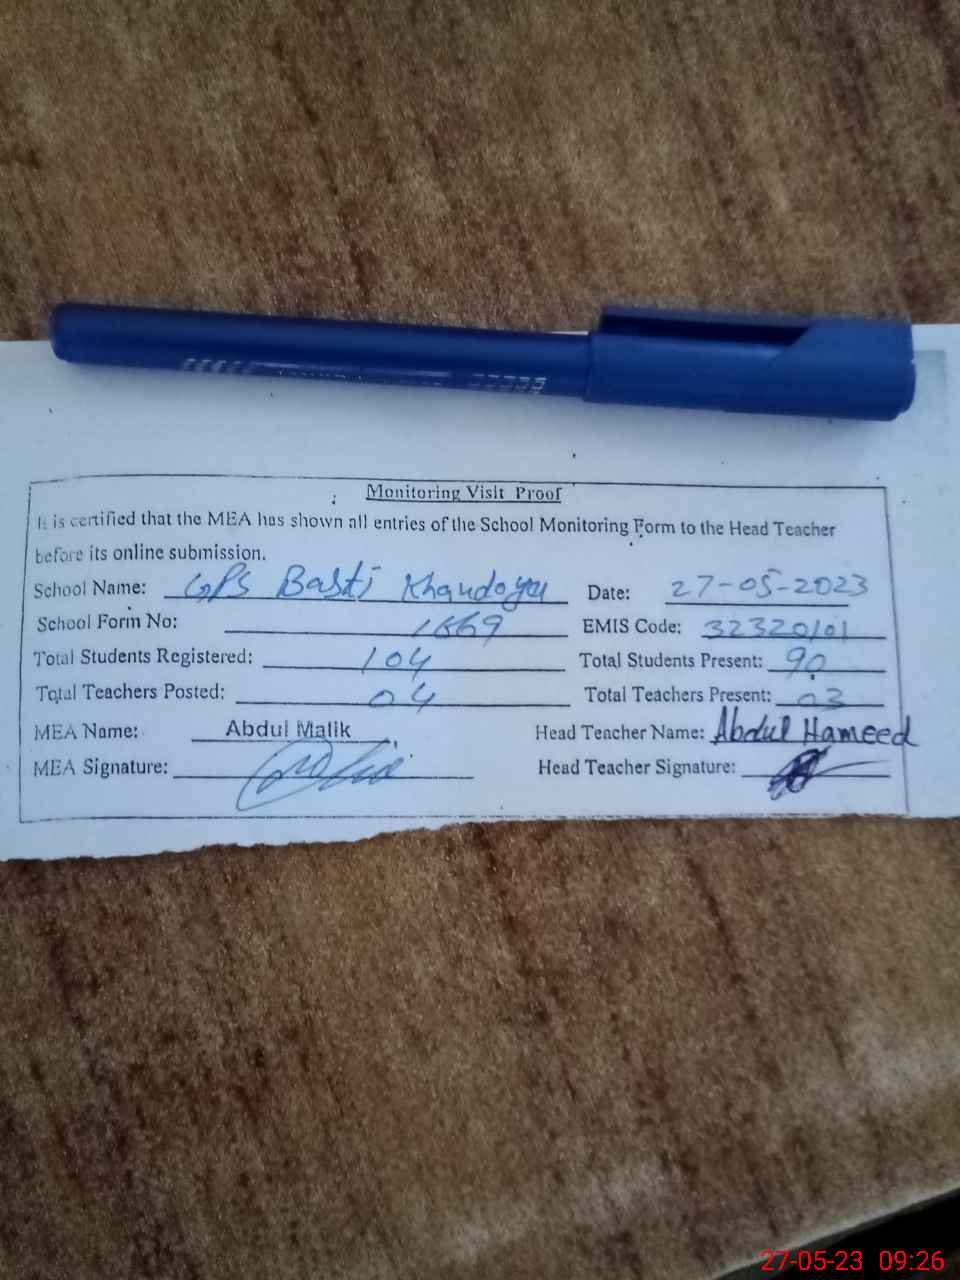 Monitoring Visit Proof
It is certified that the MEA has shown all entries of the School Monitoring Form to the Head Teacher
before its online submission.
School Name: GPS Basti Khandoya Date: 27-05-2023
School Form No: 1669 EMIS Code: 32320101
Total Students Registered: 104 Total Students Present: 90
Total Teachers Posted: 04 Total Teachers Present: 03
MEA Name: Abdul Malik Head Teacher Name: Abdul Hameed
MEA Signature: Head Teacher Signature:
27-05-23 09:26